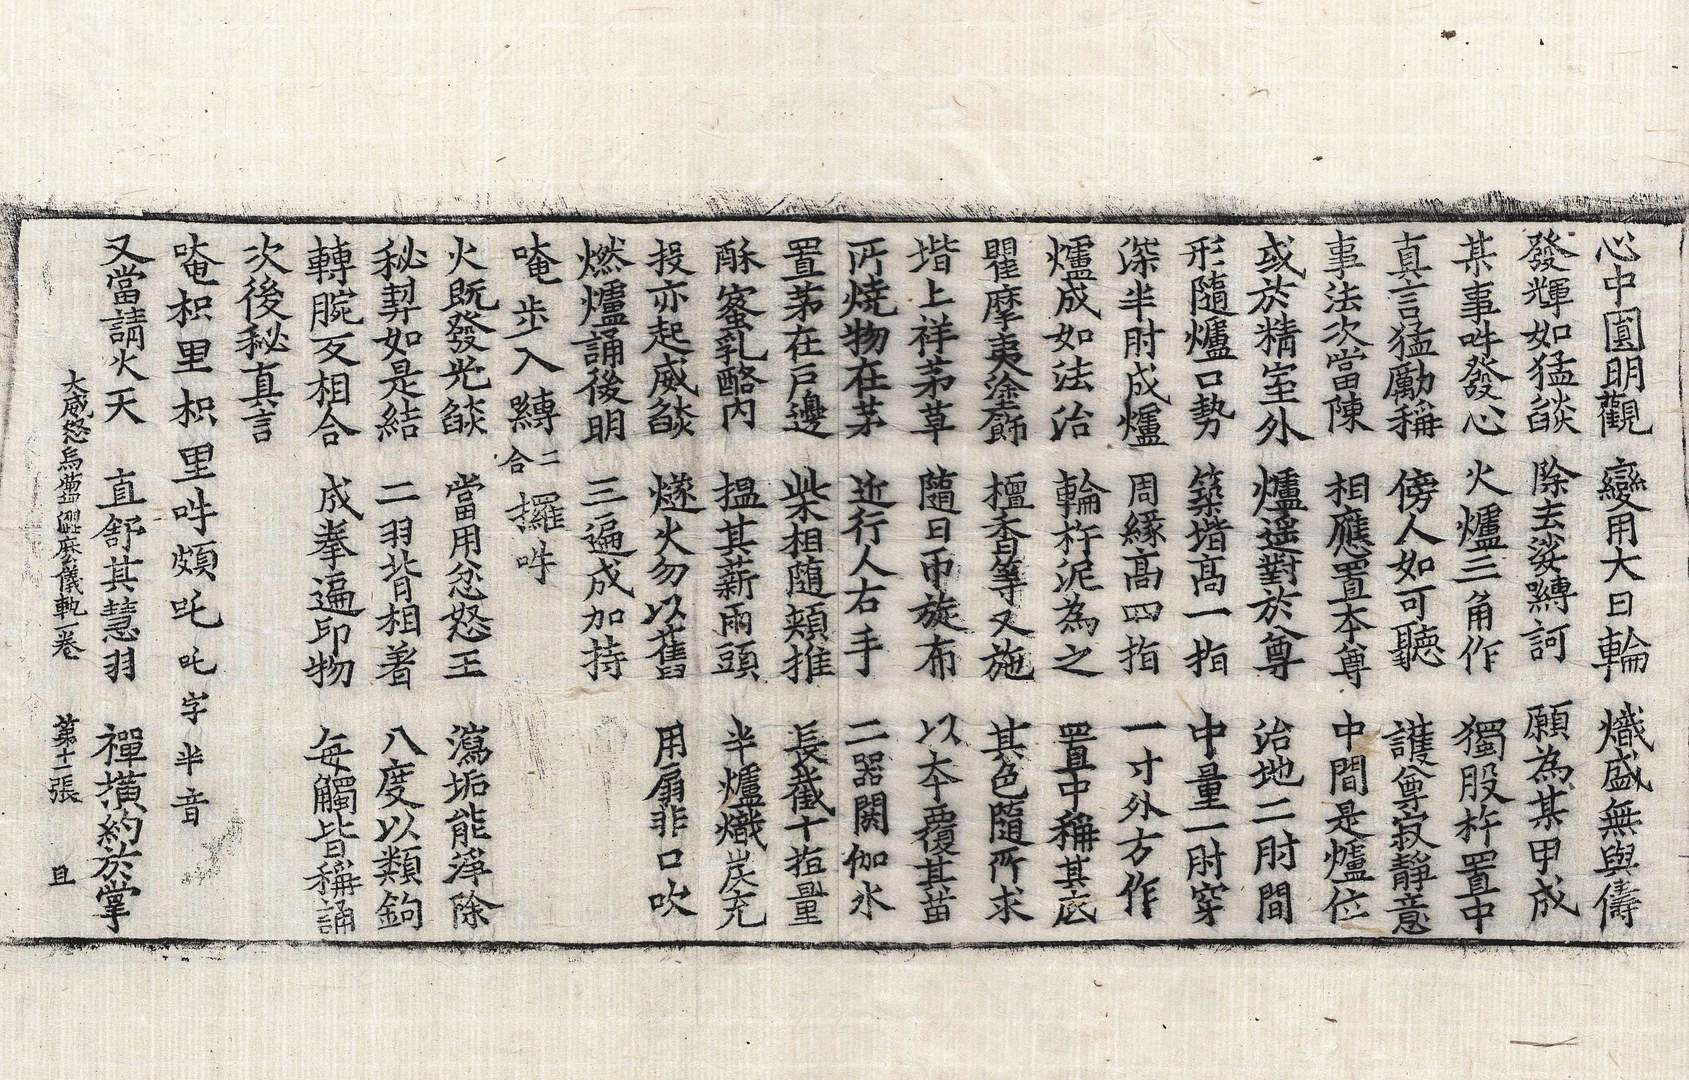 心中圓明觀 變用大日輪 熾盛無與儔
發輝如猛燄 除去娑嚩訶 願為某甲成
某事吽發心 火爐三角作 獨股杵置中
真言猛勵稱 傍人如可聽 護尊寂靜意
事法次當陳 相應置本尊 中間是爐位
或於精室外 爐遥對於尊 治地二肘間
形隨爐口勢 築堦高一指 中量一肘穿
深半肘成爐 周緣高四指 一寸外方作
爐成如法治 輪杵泥為之 置中稱其底
瞿摩夷塗飾 檀香等又施 其色隨所求
堦上祥茅草 隨日帀旋布 以本覆其苗
所燒物在茅 近行人右手 二器閼伽水
置茅在戶邊 柴相隨頰推 長截十指量
酥蜜乳酪內 搵其薪兩頭 半爐熾炭充
投亦起威燄 燧火勿以舊 用扇非口吹
燃爐誦後明 三遍成加持
唵步入嚩二合 攞吽
火既發光燄 當用忿怒王 瀉垢能淨除
秘契如是結 二羽背相著 八度以類鉤
轉腕反相合 成拳遍印物 每觸皆稱誦
次後秘真言
唵枳里枳里吽頗吒吒字半音
又當請火天 直舒其慧羽 禪橫約於掌
大威怒烏蒭澀麼儀軌一卷 第十二張 且